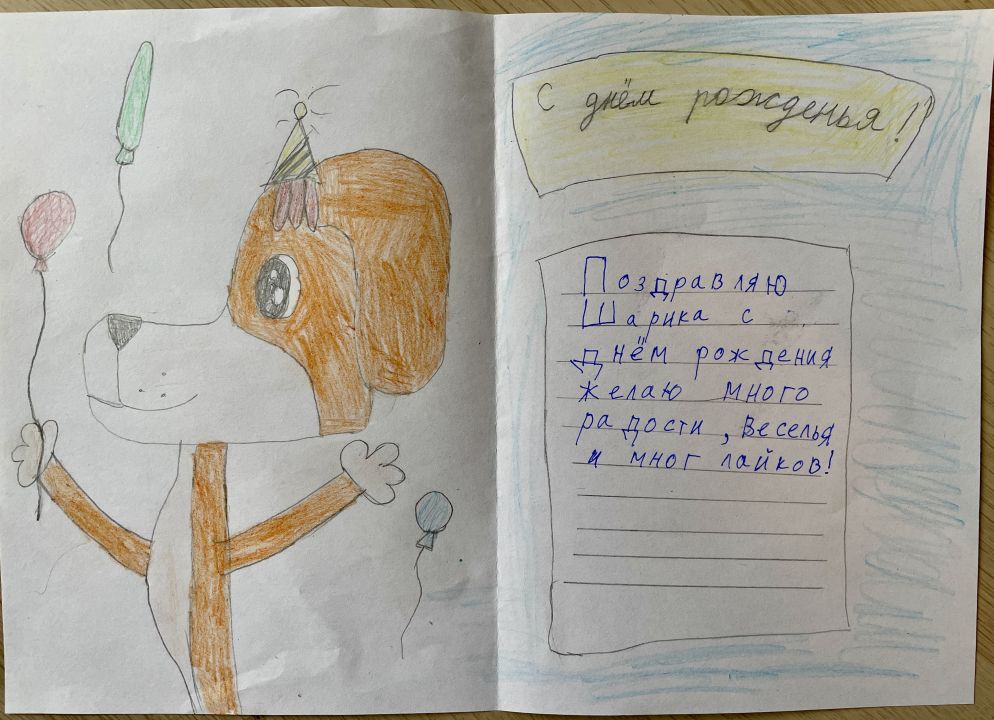 С днём рожденья!
Поздравляю
Шарика с
днём рождения
желаю много
радости, веселья
и мног лайков!